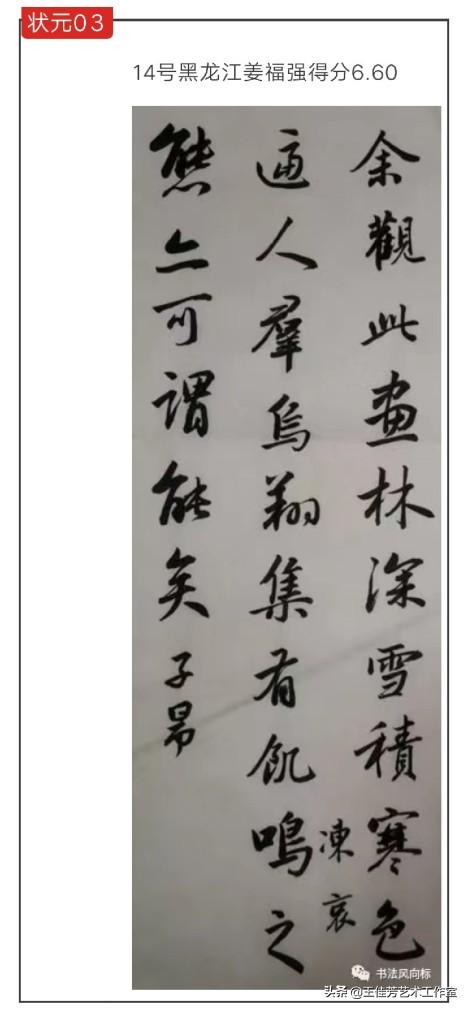 状元03
14号黑龙江姜福强得分6.60
余觀此畫林深雪積寒色
凍哀
逼人羣烏翔集有飢鳴之
態亦可謂能矣子昂
书法风向标
头条@王佳芳艺术工作室